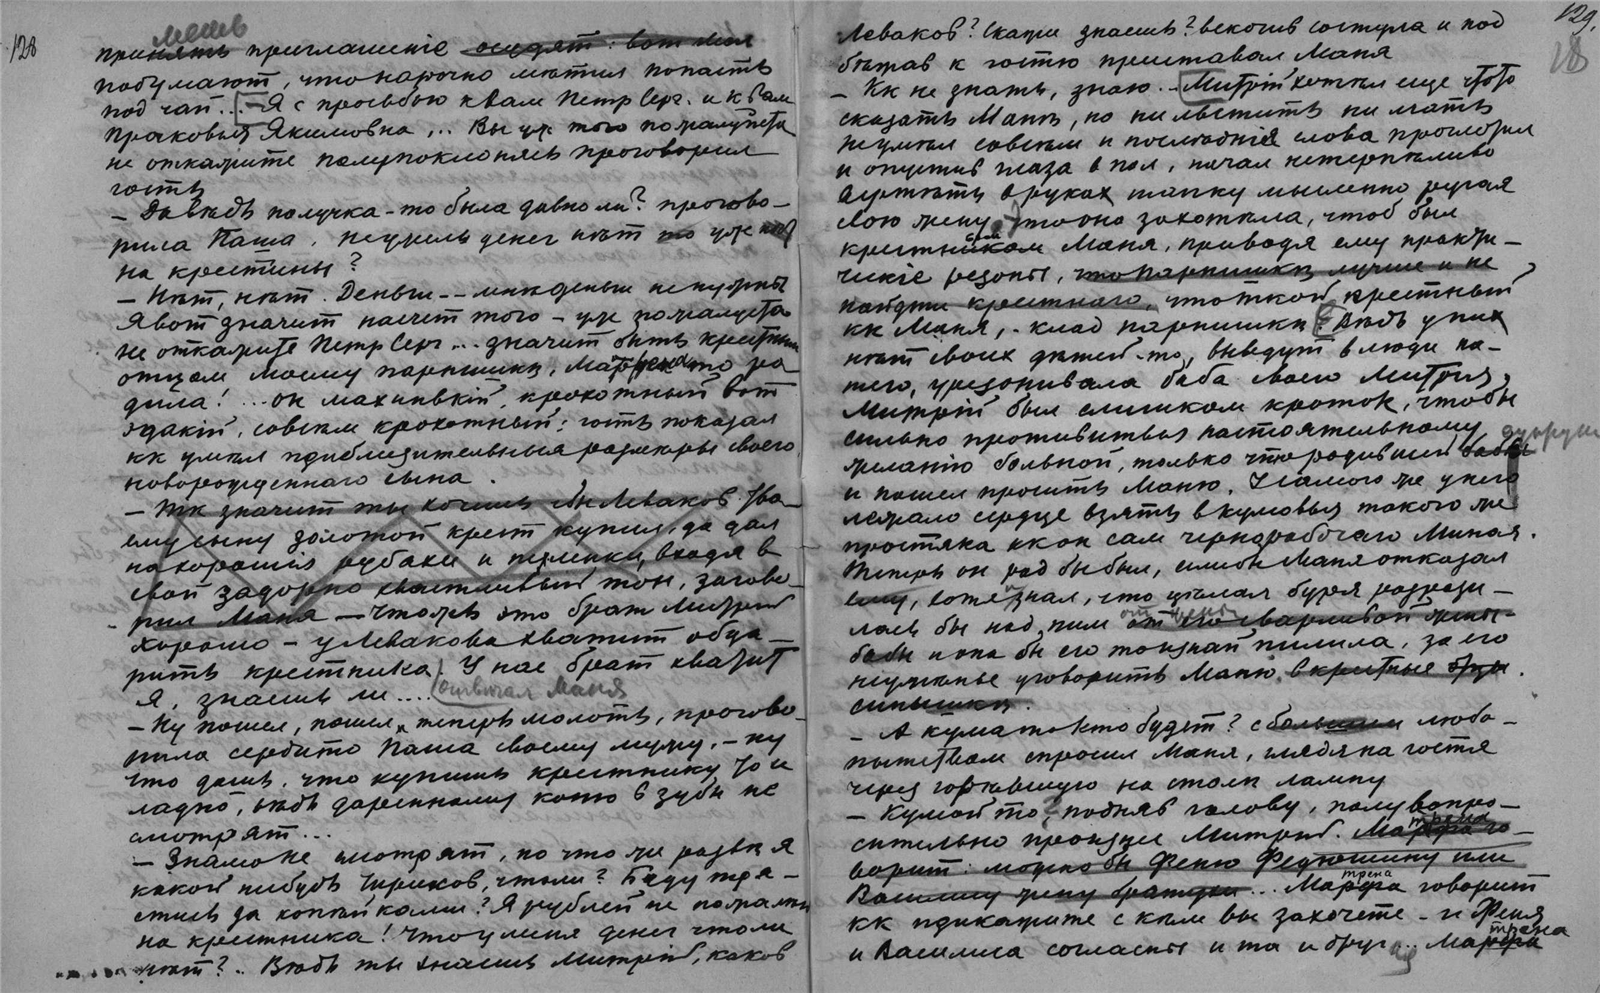 128
мешь
принять приглашение осудят: вот мол
подумают, что нарочно метил попасть
под чай... — Я с просьбою к Вам Петр Серг. и к Вам
Прасковья Якимовна,.. Вы уж того пожалуйста
не откажите полупоклонясь проговорил
гость
— Да ведь получка-то была давно ли? прогово-
рила Паша, неужель денег нѣт то уже
на крестины?
— Нѣт, нѣт. Деньги -- мнѣ деньги не нужны
я вот значит насчет того — уж пожалуйста
не откажите Петр Серг... значит быть крестным
отцом моему парнишкѣ, Матрена то ро
дила! ... он махинькiй, крохотный вот
эдакiй, совсѣм крохотный: гость показал
кк умѣл приблизительныя размѣры своего
новорожденнаго сына.
— Тк значит ты хочешь бы Леваков тво-
ему сыну золотой крест купил, да дал
на хорошiя рубахи и пеленки, входя в
свой задорно хвастливый тон, загово-
рил Маня — Что жъ это брат Митрий
хорошо — у Левакова хватит ода-
рить крестника. У нас брат хватит
Я, знаешь ли.... отвѣчал Маня
— Ну пошел, пошел теперь молоть, прогово-
рила сердито Паша своему мужу, — ну
что дашь, что купишь крестнику то и
ладно, вѣдь даренному коню в зубы не
смотрят...
— Знамо не смотрят, но что же развѣ я
какой нибудь Чириков, чтоли? Буду тря-
стись да копѣйками? Я рублей не пожалѣю
на крестника! Что у меня денег чтоли
нѣт?.. Вѣдь ты знаешь Митрий, каков
129.
18
Леваков? Скажи знаешь? вскочив со стула и под
бѣжав к гостю приставал Маня
— Кк не знать, знаю... Митрiй хотѣл еще что то
сказать Манѣ, но ни льстить ни лгать
не умѣл совсѣм и послѣднiя слова проглотил
и опустив глаза в пол, начал нетерпѣливо
вертѣть в руках шапку мысленно ругая
свою жену, что она захотѣла, чтоб был
крестным Маня, приводя ему практи-
ческiе резоны, что парнишкѣ лучше и не
найдти крестнаго, что ткой крестный
кк Маня, - клад парнишкѣ. Вѣдь у них
нѣт своих дѣтей-то, выведут в люди на-
шего, урезонивала баба своего Митрiя,
Митрiй был слишком кроток, чтобы
сильно противиться настоятельному
желанiю больной, только что родившей бабы
и пошел просить Маню. У самого же у него
лежало сердце взять в кумовья такого же
простяка кк он сам чернорабочаго Миная.
Теперь он рад бы был, если бы Маня отказал
ему, хотя знал, что цѣлая буря разрази-
лась бы над ним от его сварливой жены-
бабы и она бы его то и знай пилила, за его
неумѣнье уговорить Маню в крестные отцы
сынишки.
— А кума то кто будет? с большим любо-
пытством спросил Маня, глядя на гостя
через горѣвшую на столѣ лампу
— Кумой то? подняв голову, полувопро-
сительно произнес Митрий. Марфа го-
ворит: можно бы Феню Федюшину или
Василису жену братову... Матрена говорит
кк прикажите с кѣм вы захочете — и Феня
и Василиса согласны и та и друг... Матрена